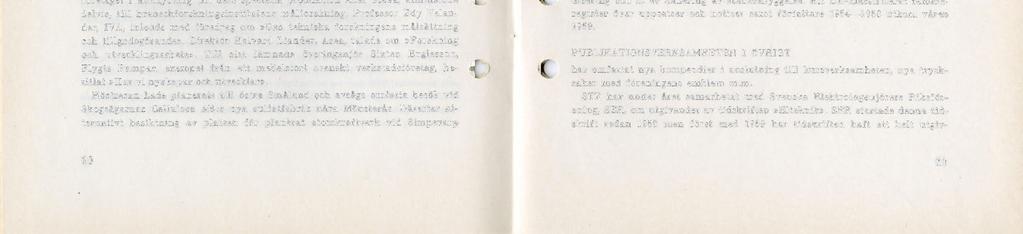 delvis, till branschforskningsinstitutens målforskning. Professor Edy Velan-
der, IVA, inledde med föredrag om »Den tekniska forskningens målsättning
och tillgodogörande». Direktör Halvard Liander, Asea, talade om »Forskning
och utvecklingsarbete». Till sist lämnade överingenjör Sixten Englesson,
Flygts Pumpar, exempel från ett medelstort svenskt verkstadsföretag, be-
titlat »Hur vi nyskapar och utvecklar».
Höstresan hade planerats till östra Småland och avsåg omfatta besök vid
Skogsägarnas Cellulosa AB:s nya sulfatfabrik nära Mönsterås. Därefter al-
ternativt besiktning av platsen för planerat atomkraftverk vid Simpevarp
20
register över uppsatser och notiser samt författare 1954–1960 utkom våren
1969.
PUBLIKATIONSVERKSAMHETEN I ÖVRIGT
har omfattat nya kompendier i anslutning till kursverksamheten, nya tryck-
saker med föreningens emblem m.m.
STF har under året samarbetat med Svenska Elektroingenjörers Riksför-
ening, SER, om utgivandet av tidskriften »Elteknik». SER startade denna tid-
skrift redan 1958 men först med 1959 har tidskriften haft ett helt utgiv-